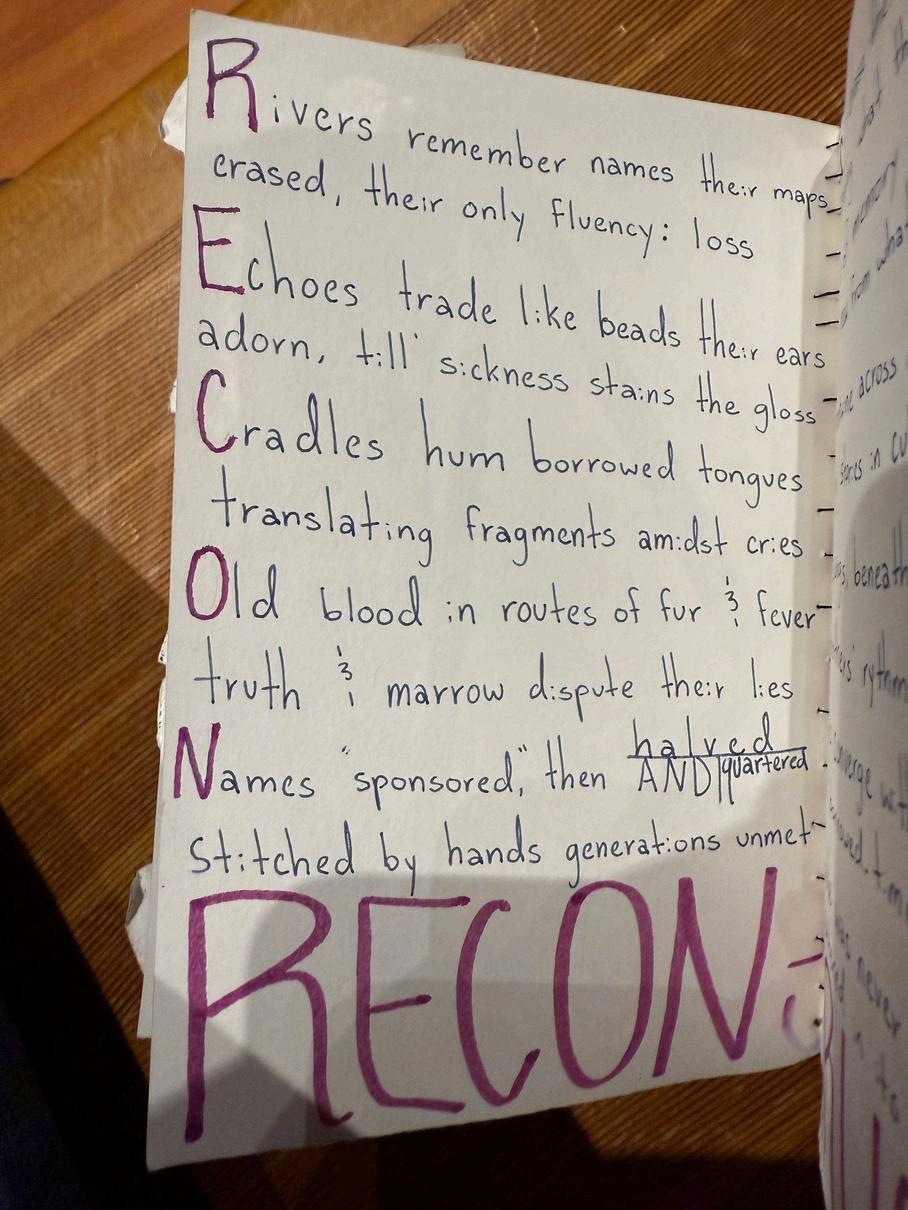 Rivers remember names their maps
erased, their only fluency: loss
Echoes trade like beads their ears
adorn, till' sickness stains the gloss
Cradles hum borrowed tongues
translating fragments amidst cries
Old blood in routes of fur & fever
truth & marrow dispute their lies
Names "sponsored," then halved AND quartered
Stitched by hands generations unmet
RECON
memory
from what
across
stories in
beneath
rythm
converge
never